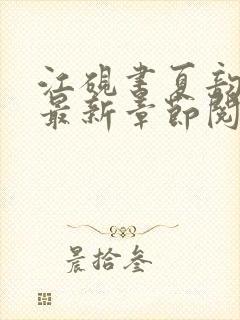 江砚书夏韵
最新章节阅
晨拾叁